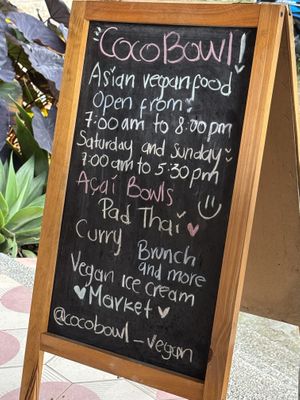 "COCO BOWL!
Asian vegan food
Open from:
7:00 am to 8:00 pm
Saturday and Sunday
7:00 am to 5:30 pm
Açai Bowls
Pad Thai
Curry Brunch
and more
Vegan Ice cream
Market
@cocobowl_vegan